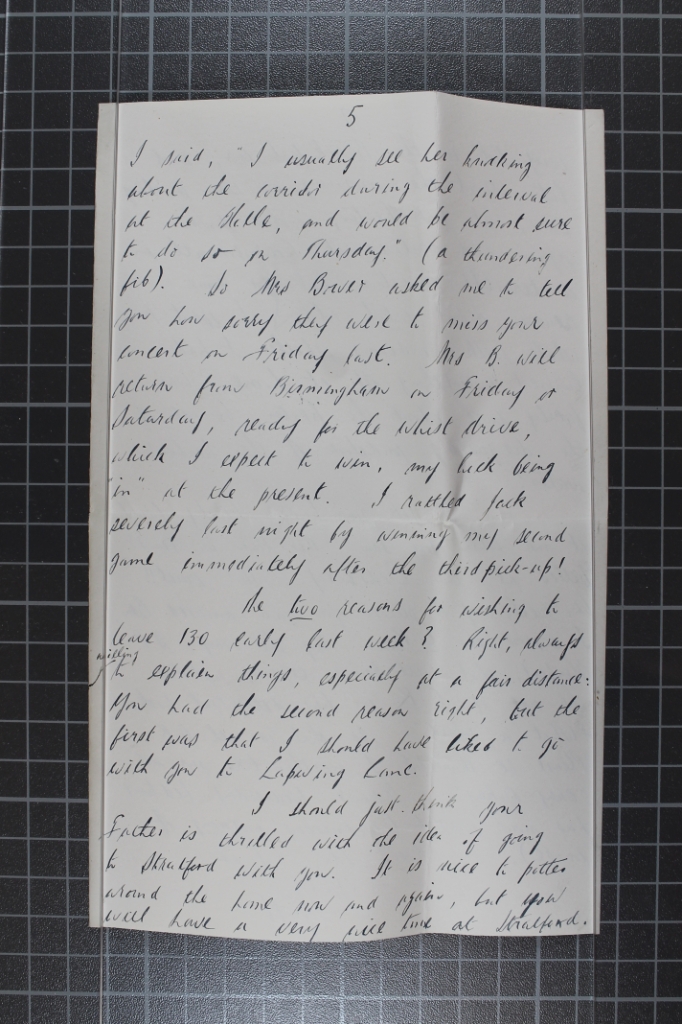 5
I said, "I usually see her
about the corridor during the interval
at the Halle, and would be almost sure
to do so on Thursday." (a thundering
fib). So Mrs Bower asked me to tell
you how sorry they were to miss your
concert on Friday last. Mrs B. will
return from Birmingham on Friday or
Saturday, ready for the whist drive,
which I expect to win, my luck being
"in" at the present. I rattled Jack
severely last night by winning my second
game immediately after the third pick-up!
The two reasons for wishing to
leave 130 early last week? Right, always
willing
to explain things, especially at a fair distance:
You had the second reason right, but the
first was that I should have liked to go
with you to Lapwing Lane.
I should just think your
Father is thrilled with the idea of going
to Stratford with you. It is nice to potter
around the home now and again, but you
will have a very nice time at Stratford.